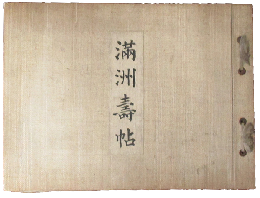 滿洲壽帖